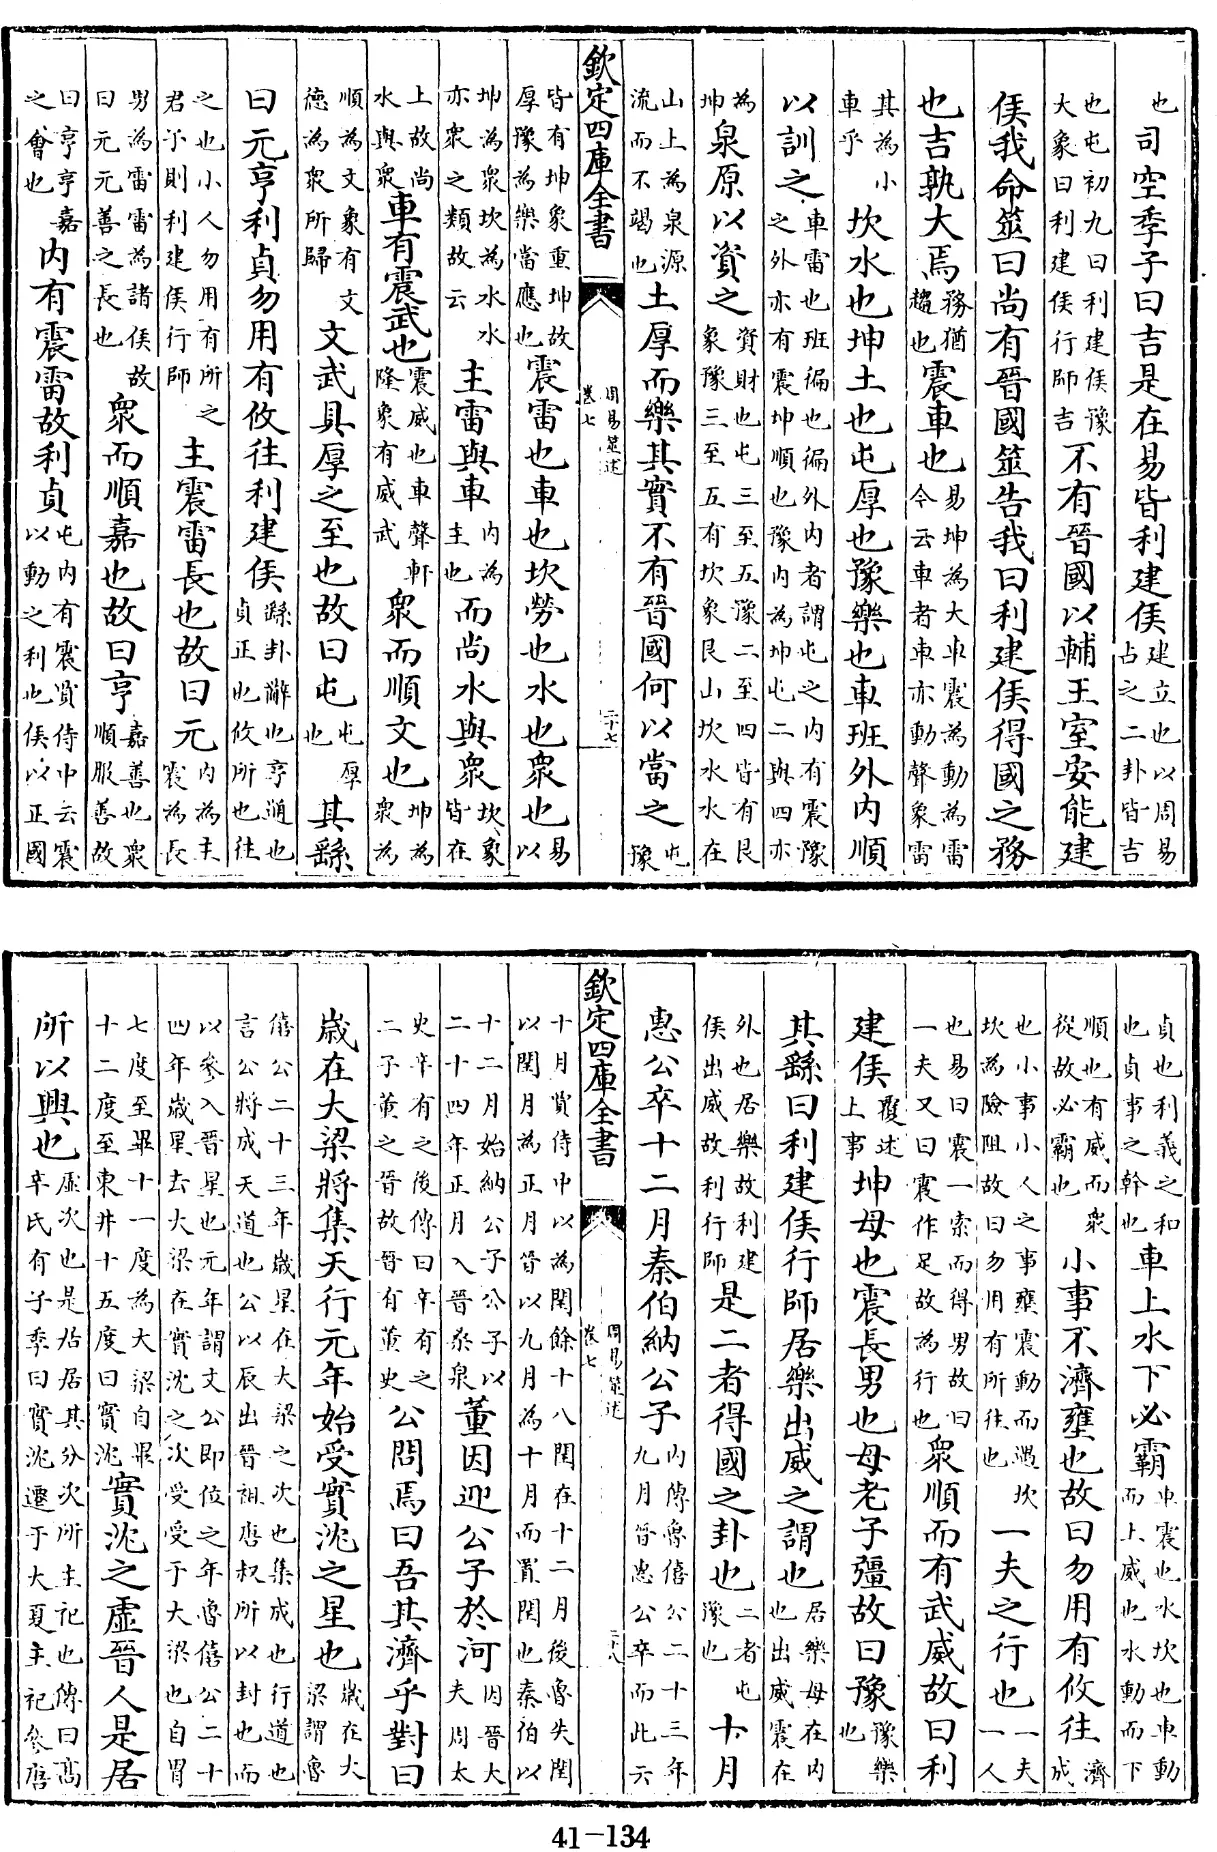 也司空季子曰吉是在易皆利建侯建立也以周易占之二卦皆吉
也屯初九曰利建侯豫大象曰利建侯行師吉不有晉國以輔王室安能建
侯我命筮曰尚有晉國筮告我曰利建侯得國之務
也吉孰大焉務猶趨也震車也易坤為大車震為動為雷今云車者車亦動聲象雷
其為小車乎坎水也坤土也屯厚也豫樂也車班外内順
以訓之車雷也班徧也徧外内者謂屯之内有震豫之外亦有震坤順也豫内為坤屯二與四亦
為坤泉原以資之資財也屯三至五豫二至四皆有艮象豫三至五有坎象艮山坎水水在
山上為泉源流而不竭也土厚而樂其實不有晉國何以當之屯豫
欽定四庫全書
周易筮述
卷七
二十七
皆有坤象重坤故厚豫為樂當應也震雷也車也坎勞也水也衆也易以
坤為衆坎為水水亦衆之類故云主雷與車内為主也而尚水與衆坎象皆在
上故尚水與衆車有震武也震威也車聲軒隆象有威武衆而順文也坤為衆為
順為文象有文德為衆所歸文武具厚之至也故曰屯屯厚也其繇
曰元亨利貞勿用有攸往利建侯繇卦辭也亨通也貞正也攸所也往
之也小人勿用有所之君子則利建侯行師主震雷長也故曰元内為主震為長
男為雷雷為諸侯故曰元元善之長也衆而順嘉也故曰亨嘉善也衆順服善故
曰亨亨嘉之會也内有震雷故利貞屯内有震賈侍中云震以動之利也侯以正國
貞也利義之和也貞事之幹也車上水下必霸車震也水坎也車動而上威也水動而下
順也有威而衆從故必霸也小事不濟壅也故曰勿用有攸往濟成
也小事小人之事壅震動而遇坎坎為險阻故曰勿用有所往也一夫之行也一夫一人
也易曰震一索而得男故曰一夫又曰震作足故為行也衆順而有武威故曰利
建侯覆述上事坤母也震長男也母老子彊故曰豫豫樂也
其繇曰利建侯行師居樂出威之謂也居樂母在内也出威震在
外也居樂故利建侯出威故利行師是二者得國之卦也二者屯豫也十月
惠公卒十二月秦伯納公子内傳魯僖公二十三年九月晉惠公卒而此云
欽定四庫全書
周易筮述
卷七
二十八
十月賈侍中以為閏餘十八閏在十二月後魯失閏以閏月為正月晉以九月為十月而置閏也秦伯以
十二月始納公子公子以二十四年正月入晉桑泉董因迎公子於河因晉大夫周太
史辛有之後傳曰辛有之二子董之晉故晉有董史公問焉曰吾其濟乎對曰
歲在大梁將集天行元年始受實沈之星也歲在大梁謂魯
僖公二十三年歲星在大梁之次也集成也行道也言公將成天道也公以辰出晉祖唐叔所以封也而
以參入晉星也元年謂文公即位之年魯僖公二十四年歲星去大梁在實沈之次受受于大梁也自胃
七度至畢十一度為大梁自畢十二度至東井十五度曰實沈實沈之虛晉人是居
所以興也虛次也是居居其分次所主祀也傳曰高辛氏有子季曰實沈遷于大夏主祀參唐
41-134